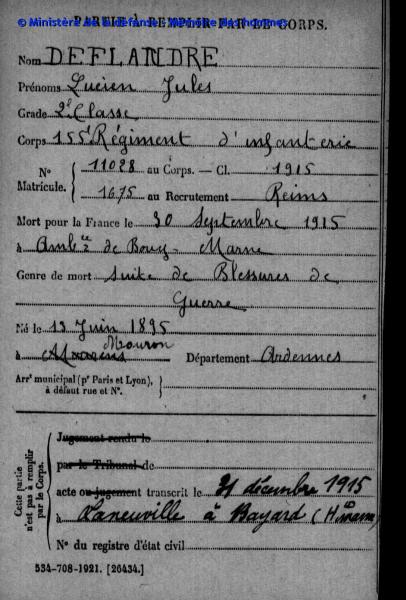 © Ministère de la défense - Mémoire des hommes
PARTIE À REMPLIR PAR LE CORPS.
Nom DEFLANDRE
Prénoms Lucien Jules
Grade 2e Classe
Corps 155e Régiment d'infanterie
N° Matricule. 11028 au Corps. — Cl. 1915
1675 au Recrutement Reims
Mort pour la France le 30 Septembre 1915
à Ambce de Bouy - Marne
Genre de mort Suite de Blessures de
Guerre
Né le 13 Juin 1895
Mouron
à Département Ardennes
Arrt municipal (pr Paris et Lyon), à défaut rue et N°.
Cette partie n'est pas à remplir par le Corps.
Jugement rendu le
par le Tribunal de
acte ou jugement transcrit le 31 décembre 1915
à Laneuville à Bayard (Hte Marne)
N° du registre d'état civil
534-708-1921. [26434.]